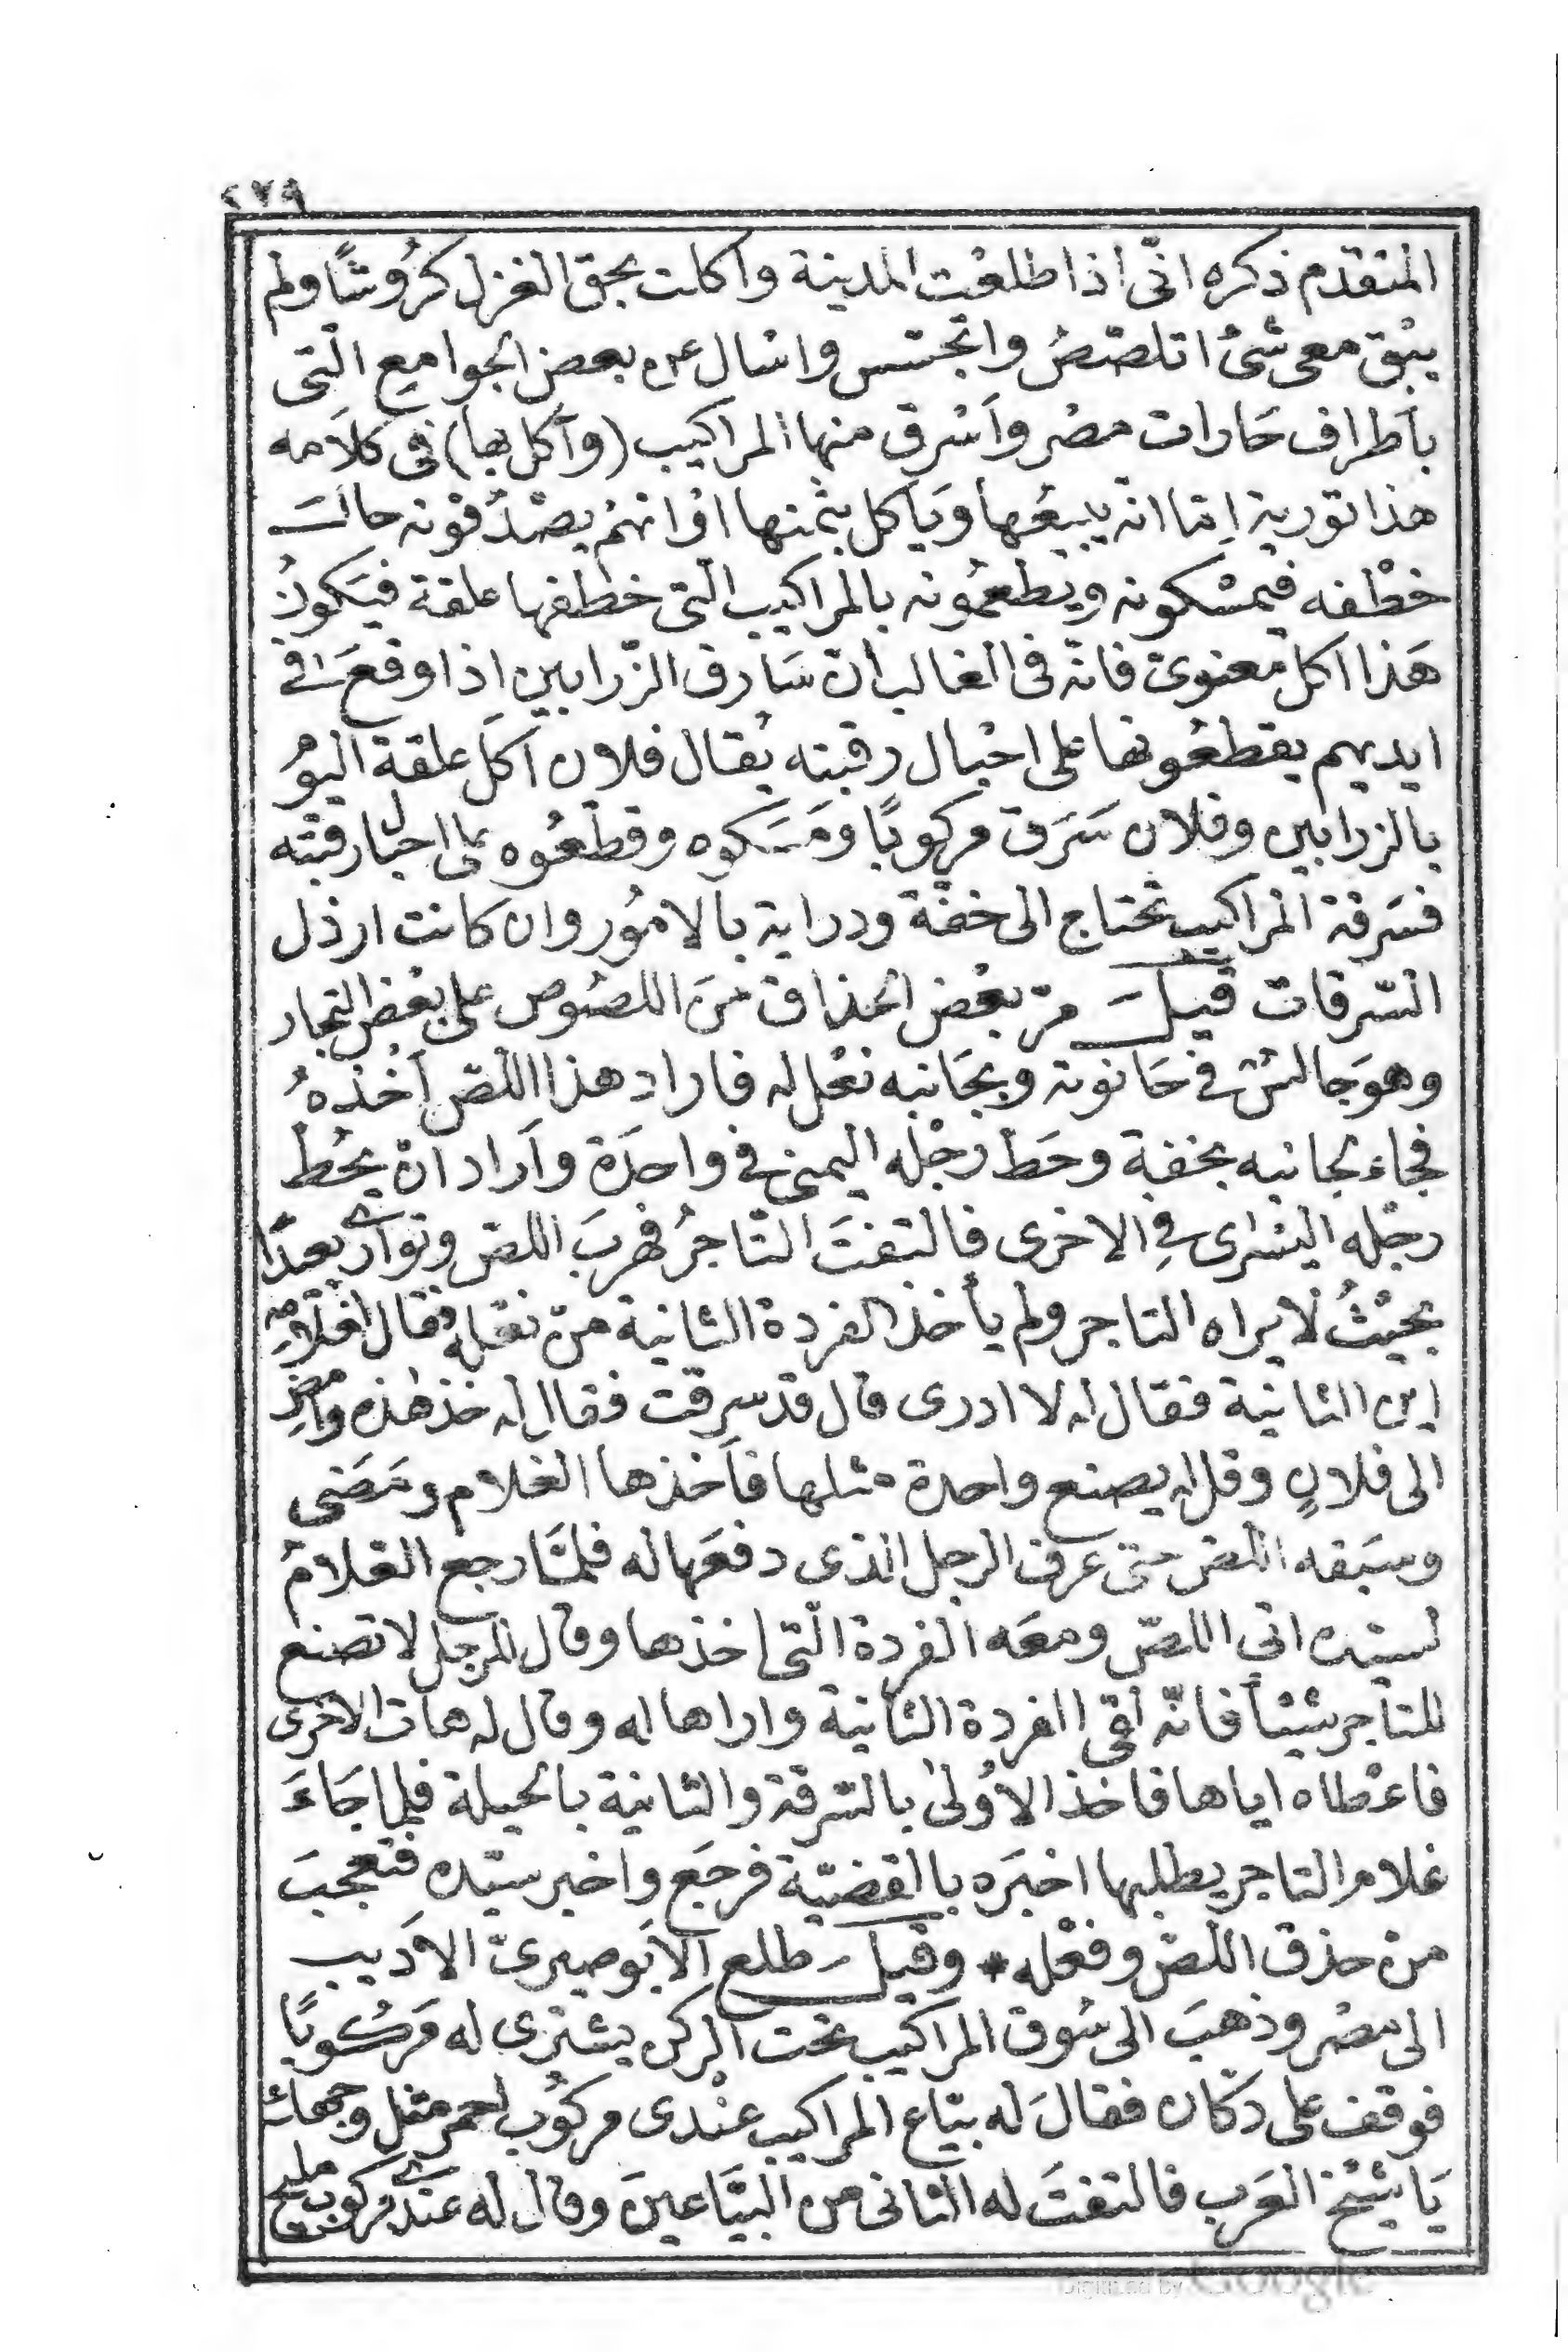 ٢٧٩
المتقدم ذكره انّى اذا طلعْت المدينة واكلت بحق الغزل كرُوشًا ولم
يبْق معى شئ اتلصّصُ واتجسّس واسْال عن بعض الجوامع الّتى
بأطراف حَارات مصْر وآسْرق منها المراكيب (وآكل بها) فى كلاَمه
هذا تورية اِمّا انّه يبيعُها وَيَأكل بثمنها اوْ انهمُ يصْدُفونه حالت
خطْفه فيمْسكونه ويطعمُونه بالمراكيب الّتى خطفها علقة فيَكونُ
هَذا اكل معنوىّ فانّه فى الغالب أن سَارق الزّرابين اذا وقعَ فى
ايديهم يقطعُونها على احْبال رقبته يُقال فلان آكَل علقة اليوْمُ
بالزرابين وفلان سَرَق مركوبًا ومَسَكوه وقطّعُوه على احبال رقبته
فسَرقة المراكيب تحْتاج الى خفّة ودراية بالامُور وان كانت ارذل
السّرقات قيل مرّ بعْض الحذاق منَ اللصُوص على بعْض التجار
وهوَ جالسٌ فى حَانوته وبجَانبه نعْل له فاراد هذا اللّصّ أخْذهُ
فجاء لجانبه بخفية وحَطّ رجْله اليمنى فى واحدَة وآراد انْ يحُطّ
رجْله اليسْرى فى الاخرى فالتفتَ التّاجرُ فهربَ اللصّ وتوارى بعيدًا
بحيْثُ لا يراه التاجر ولم يأخذ الفردة الثانية منْ نعْله فقال لغلامه
اين الثانية فقال له لا ادرى قال قد سرقت فقال له خذ هٰذه وامْض
الى فلانٍ وقل له يصنع واحدة مثلها فآخذها الغلام ومَضَى
وسبَقه اللصّ حتى عرف الرجل الذى دفعَها له فلمَّا رجع الغلامُ
لسيّده اتى اللصّ ومعَه الفردة الّتى اخذها وقال للرجل لا تصنع
للتاجر شيْئاً فانّه لقى الفردة الثانية واراها له وقال له هات الاخرى
فاعْطاه اياها فاخذ الاُولىٰ بالسّرقة والثانية بالحيلة فلما جَاءَ
غلام التاجر يطلبها اخبَره بالقضيّة فرجَع واخبر سيّده فتعجّبَ
منْ حذق اللّصّ وفعْله * وقيل طلع الاَبوصيرىّ الاَديب
الى مصْر وذهبَ الى سُوق المراكيب تحت الركن يشترى له مَركُوبًا
فوقف على دكّان فقالَ له بيّاع المراكيب عنْدى مركُوب لحمر مثل وجهك
يَا شيْخ العَرب فالتفتَ له الثانى من البَيَّاعينَ وقال له عندى مركوب مليح